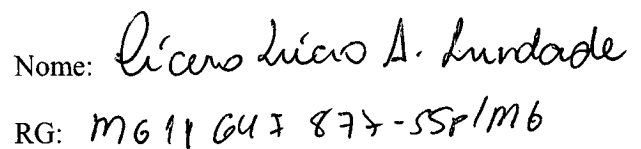 Nome: Cícero Lúcio A. Lundade
RG: MG 11 647 877-SSP/MG